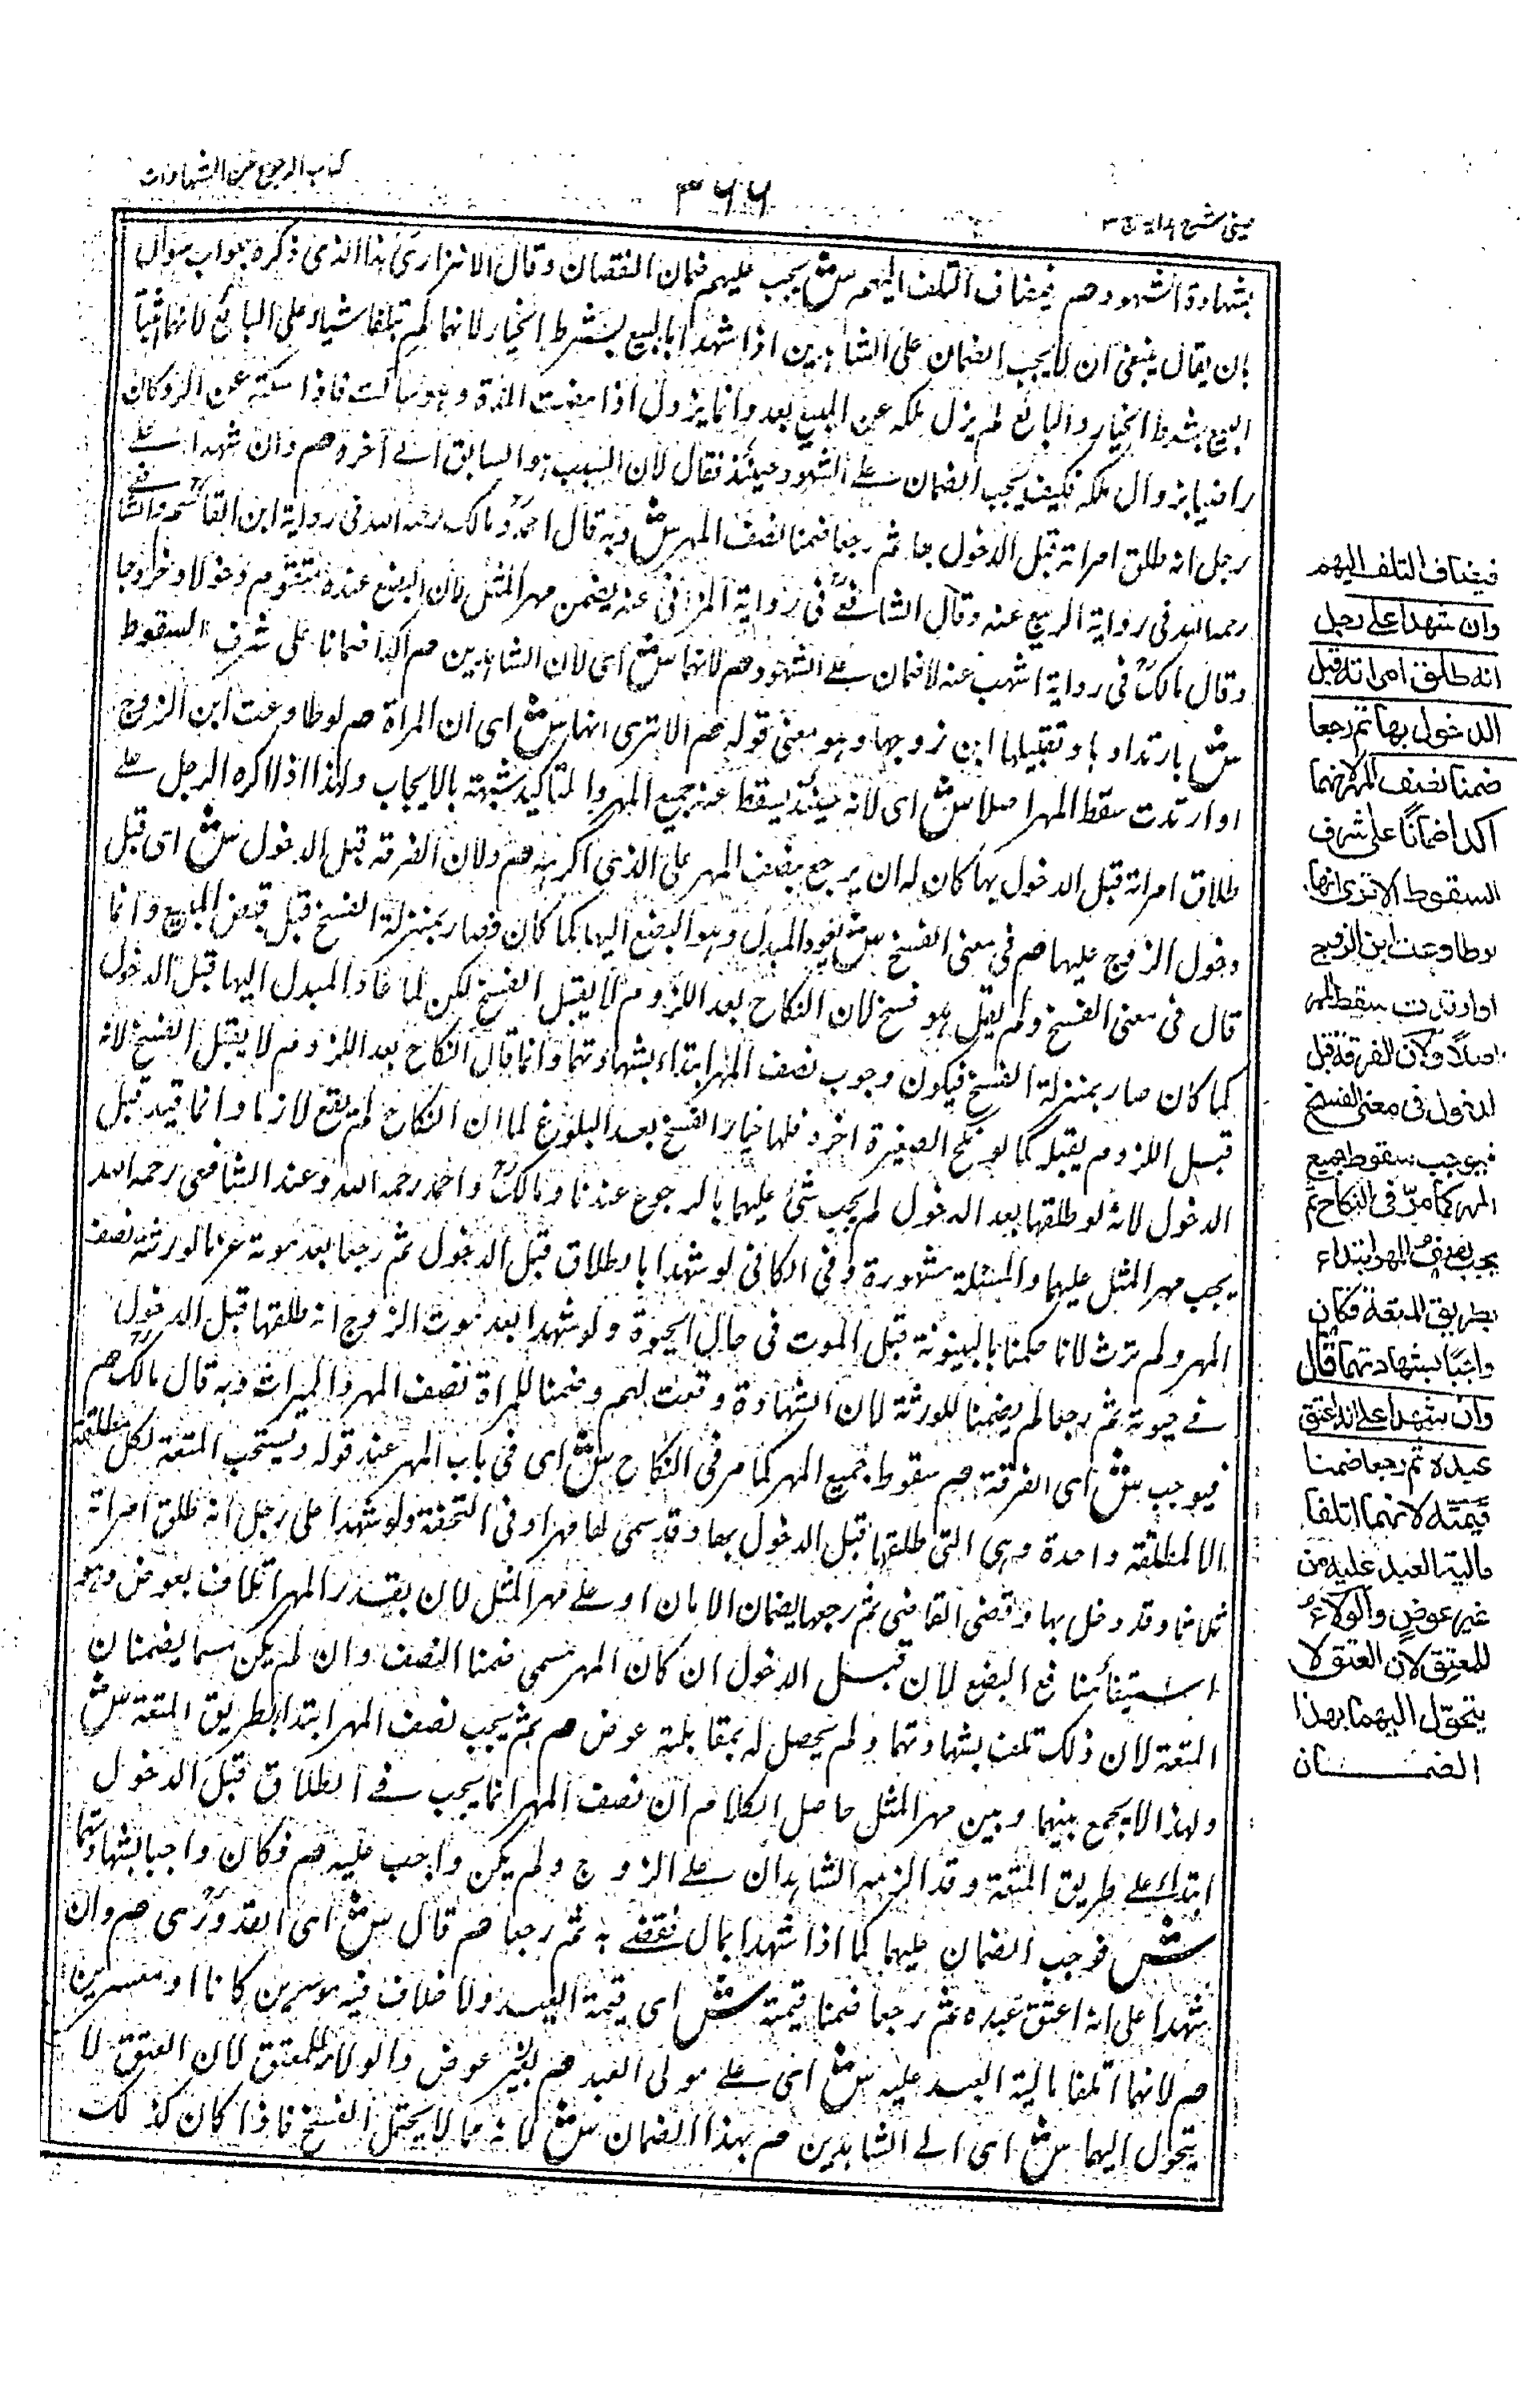 عینی شرح ہدایہ ج ۳
۳۶۶
کتاب الرجوع عن الشہادات
بشہادة الشہود صم فیضاف التلف الیہم ش یجب علیہم ضمان النقصان وقال الاترازی ہذا الذی ذکرہ جواب سوال
بان یقال ینبغی ان لا یجب الضمان علی الشاہدین اذا شہدا بالبیع بشرط الخیار لانہما لم یتلفا شیئا علی البائع لانہما اثبتا
البیع بشرط الخیار والبائع لم یزل ملکہ عن المبیع بعد وانما یزول اذا مضت المدة وہو ساکت فاذا سکت عن الرد کان
راضیا بزوال ملکہ فکیف یجب الضمان علے الشہود حینئذ فقال لان السبب ہو السابق الے آخرہ صم وان شہدا علے
رجل انہ طلق امراتہ قبل الدخول بہا ثم رجعا ضمنا نصف المہر ش وبہ قال احمد ومالک رحمہ اللہ فی روایة ابن القاسم والشافعے
رحمہ اللہ فی روایة الربیع عنہ وقال الشافعے فی روایة المزنی عنہ یضمن مہر المثل لان البضع عندہ متقوم دخولا وخروجا
وقال مالک فی روایة اشہب عنہ لا ضمان علے الشہود صم لانہما ش ای لان الشاہدین صم اکدا ضمانا علی شرف السقوط
ش بارتدادہا وتقبیلہا ابن زوجہا وہو معنی قولہ صم الا تری انہا ش ای ان المراة صم لو طاوعت ابن الزوج
او ارتدت سقط المہر اصلا ش ای لانہ حینئذ یسقط عنہ جمیع المہر والتاکید شبہة بالایجاب ولہذا اذا اکرہ الرجل علے
طلاق امراتہ قبل الدخول بہا کان لہ ان یرجع بنصف المہر علی الذی اکرہہ صم ولان الفرقة قبل الدخول ش ای قبل
دخول الزوج علیہا صم فی معنی الفسخ ش یعود المبدل وہو البضع الیہا کما کان فصار بمنزلة الفسخ قبل قبض المبیع وانما
قال فی معنی الفسخ ولم یقل ہو فسخ لان النکاح بعد اللزوم لا یقبل الفسخ لکن لما عاد المبدل الیہا قبل الدخول
کما کان صار بمنزلة الفسخ فیکون وجوب نصف المہر ابتداء بشہادتہما وانما قال النکاح بعد اللزوم لا یقبل الفسخ لانہ
قبل اللزوم یقبلہ کما لو نکح الصغیرة اخ وفلہا خیار الفسخ بعد البلوغ لما ان النکاح لم یقع لازما وانما قید قبل
الدخول لانہ لو طلقہا بعد الدخول لم یجب شئ علیہما بالرجوع عندنا ومالک واحمد رحمہ اللہ وعند الشافعی رحمہ اللہ
یجب مہر المثل علیہما والمسئلة مشہورة وفی الکافی لو شہدا بالطلاق قبل الدخول ثم رجعا بعد موتہ غرما لورثتہ نصف
المہر ولم ترث لانا حکمنا بالبینونة قبل الموت فی حال الحیوة ولو شہدا بعد موت الزوج انہ طلقہا قبل الدخول
فے حیوتہ ثم رجعا لم یضمنا للورثة لان الشہادة وقعت لہم وضمنا للمراة نصف المہر والمیراث وبہ قال مالک صم
فیوجب ش ای الفرقة صم سقوط جمیع المہر کما مر فی النکاح ش ای فی باب المہر عند قولہ ویستحب المتعة لکل مطلقة
الا لمطلقة واحدة وہی التی طلقہا قبل الدخول بہا وقد سمی لہا مہرا وفی التحفة ولو شہدا علی رجل انہ طلق امراتہ
ثلاثا وقد دخل بہا وقضی القاضی ثم رجعا یضمنان الا ما زاد علے مہر المثل لان بقدر المہر اتلاف بعوض وہو
استیفاء منافع البضع لان قبل الدخول ان کان المہر مسمی ضمنا النصف وان لم یکن مسما یضمنان
المتعة لان ذلک تلف بشہادتہما ولم یحصل لہ بمقابلتہ عوض صم ثم یجب نصف المہر ابتدا بطریق المتعة ش
ولہذا لا یجمع بینہما وبین مہر المثل حاصل الکلام ان نصف المہر انما یجب فے الطلاق قبل الدخول
ابتداء علے طریق المتعة وقد الزمہ الشاہدان علے الزوج ولم یکن واجب علیہ صم فکان واجبا بشہادتہما
ش فوجب الضمان علیہما کما اذا شہدا بمال فقضے بہ ثم رجعا صم قال ش ای القدوری صم وان
شہدا علی انہ اعتق عبدہ ثم رجعا ضمنا قیمتہ ش ای قیمة العبد ولا خلاف فیہ موسرین کانا او معسرین
صم لانہما اتلفا مالیة العبد علیہ ش ای علے مولی العبد صم بغیر عوض والولاء للمعتق لان العتق لا
یتحول الیہما ش ای الے الشاہدین صم بہذا الضمان ش لانہ مما لا یحتمل الفسخ فاذا کان کذلک
فیضاف التلف الیہم
وان شهدا علی رجل
انه طلق امراته قبل
الدخول بها ثم رجعا
ضمنا نصف المهر لانهما
اکدا ضمانًا علی شرف
السقوط الا تری انها
لو طاوعت ابن الزوج
او ارتدت سقط المهر
اصلاً ولان الفرقة قبل
الدخول فی معنی الفسخ
فیوجب سقوط جمیع
المهر کما مرّ فی النکاح ثم
یجب نصف المهر ابتداء
بطریق المتعة فکان
واجبًا بشهادتهما قال
وان شهدا علی انه اعتق
عبده ثم رجعا ضمنا
قیمته لانهما اتلفا
مالیة العبد علیه من
غیر عوضٍ والولاء
للمعتِق لان العتق لا
یتحوّل الیهما بهذا
الضمــــان